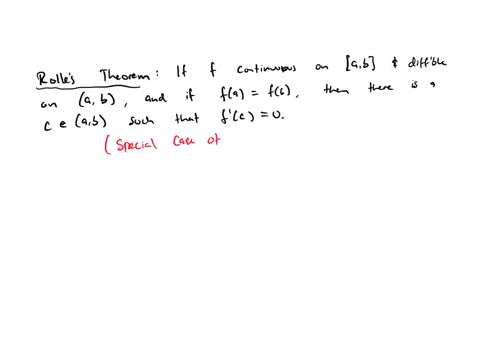 Rolle's Theorem: If f continuous on [a,b] & diff'ble
on (a,b), and if f(a) = f(b), then there is a
c ∈ (a,b) such that f'(c) = 0.
(Special case of